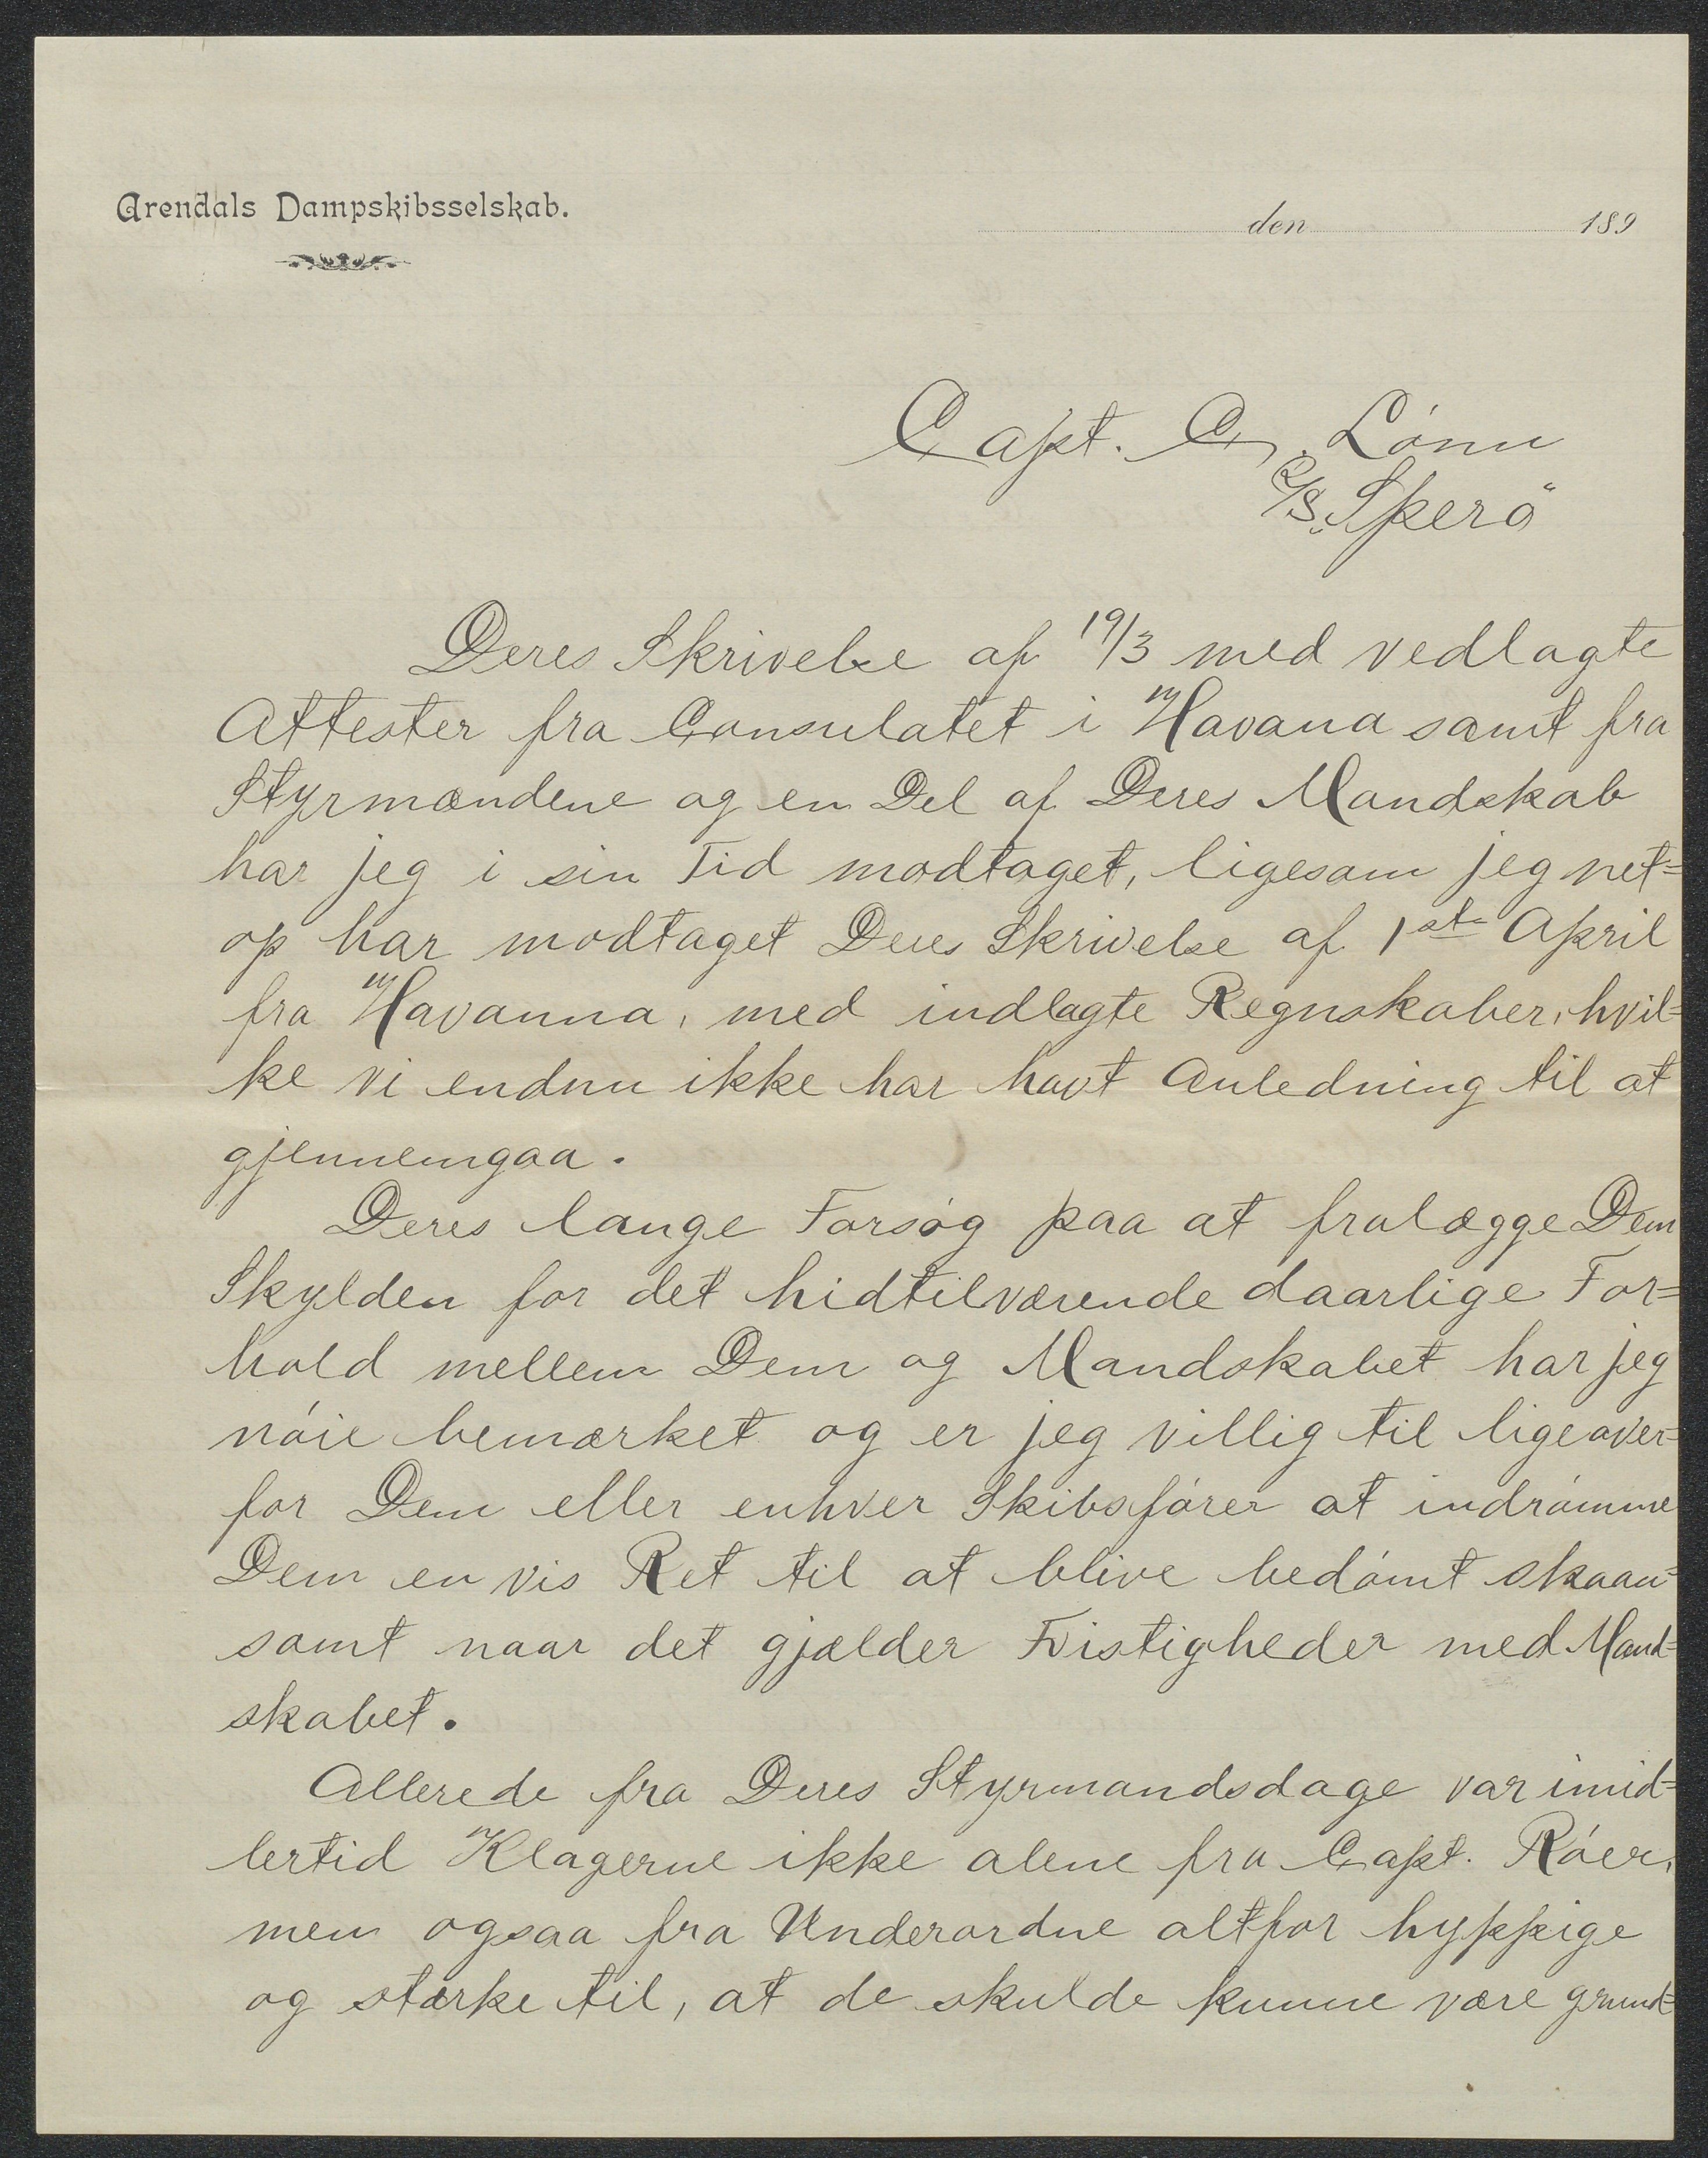 Arendals Dampskibsselskab.
den 189
Capt. C. Lónn
D/S. „Speró“
Deres Skrivelse af 19/3 med vedlagte
Attester fra Consulatet i Havana samt fra
Styrmændene og en Del af Deres Mandskab
har jeg i sin Tid modtaget, ligesom jeg net=
op har modtaget Deres Skrivelse af 1ste April
fra Havanna, med indlagte Regnskaber, hvil=
ke vi endnu ikke har havt Anledning til at
gjennemgaa.
Deres lange Forsóg paa at fralægge Dem
Skylden for det hidtilværende daarlige For=
hold mellem Dem og Mandskabet har jeg
nóie bemærket og er jeg villig til ligeover=
for Dem eller enhver Skibsfórer at indrómme
Dem en vis Ret til at blive bedómt skaan=
somt naar det gjælder Tvistigheder med Mand=
skabet.
Allerede fra Deres Styrmandsdage var imid=
lertid Klagerne ikke alene fra Capt. Róer,
men ogsaa fra Underordne altfor hyppige
og stærke til, at de skulde kunne være grund=